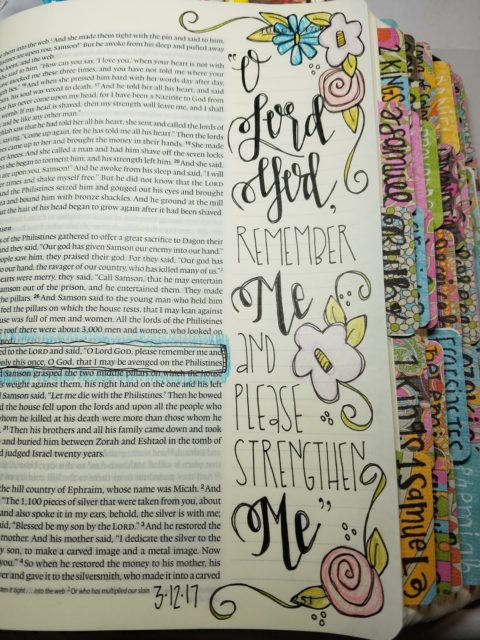 them into the web. And she made them tight with the pin and said to him,
are upon you, Samson!" But he awoke from his sleep and pulled away
the loom, and the web.
said to him, "How can you say, 'I love you,' when your heart is not with
mocked me these three times, and you have not told me where your
th lies." 16 And when she pressed him hard with her words day after day,
him, his soul was vexed to death. 17 And he told her all his heart, and said
has never come upon my head, for I have been a Nazirite to God from
womb. If my head is shaved, then my strength will leave me, and I shall
and be like any other man."
lilah saw that he had told her all his heart, she sent and called the lords of
saying, "Come up again, for he has told me all his heart." Then the lords
came up to her and brought the money in their hands. 19 She made
her knees. And she called a man and had him shave off the seven locks
she began to torment him, and his strength left him. 20 And she said,
are upon you, Samson!" And he awoke from his sleep and said, "I will
er times and shake myself free." But he did not know that the LORD
and the Philistines seized him and gouged out his eyes and brought
a and bound him with bronze shackles. And he ground at the mill
ut the hair of his head began to grow again after it had been shaved.
of the Philistines gathered to offer a great sacrifice to Dagon their
and they said, "Our god has given Samson our enemy into our hand."
people saw him, they praised their god. For they said, "Our god has
our hand, the ravager of our country, who has killed many of us."
hearts were merry, they said, "Call Samson, that he may entertain
amson out of the prison, and he entertained them. They made
the pillars. 26 And Samson said to the young man who held him
feel the pillars on which the house rests, that I may lean against
ouse was full of men and women. All the lords of the Philistines
e roof there were about 3,000 men and women, who looked on
ned.
ed to the LORD and said, "O Lord GOD, please remember me and
only this once, O God, that I may be avenged on the Philistines
Samson grasped the two middle pillars on which the house
is weight against them, his right hand on the one and his left
Samson said, "Let me die with the Philistines." Then he bowed
d the house fell upon the lords and upon all the people who
whom he killed at his death were more than those whom he
31 Then his brothers and all his family came down and took
and buried him between Zorah and Eshtaol in the tomb of
d judged Israel twenty years.
the hill country of Ephraim, whose name was Micah. 2 And
"The 1,100 pieces of silver that were taken from you, about
and also spoke it in my ears, behold, the silver is with me;
said, "Blessed be my son by the LORD." 3 And he restored the
mother. And his mother said, "I dedicate the silver to the
y son, to make a carved image and a metal image. Now
you." 4 So when he restored the money to his mother, his
ver and gave it to the silversmith, who made it into a carved
into the web 2 Or who has multiplied our slain
"O
Lord
God,
REMEMBER
Me
AND
PLEASE
STRENGTHEN
Me"
3·12·17
KINGS
2 Samuel
Ruth
1 Kings
1 Samuel